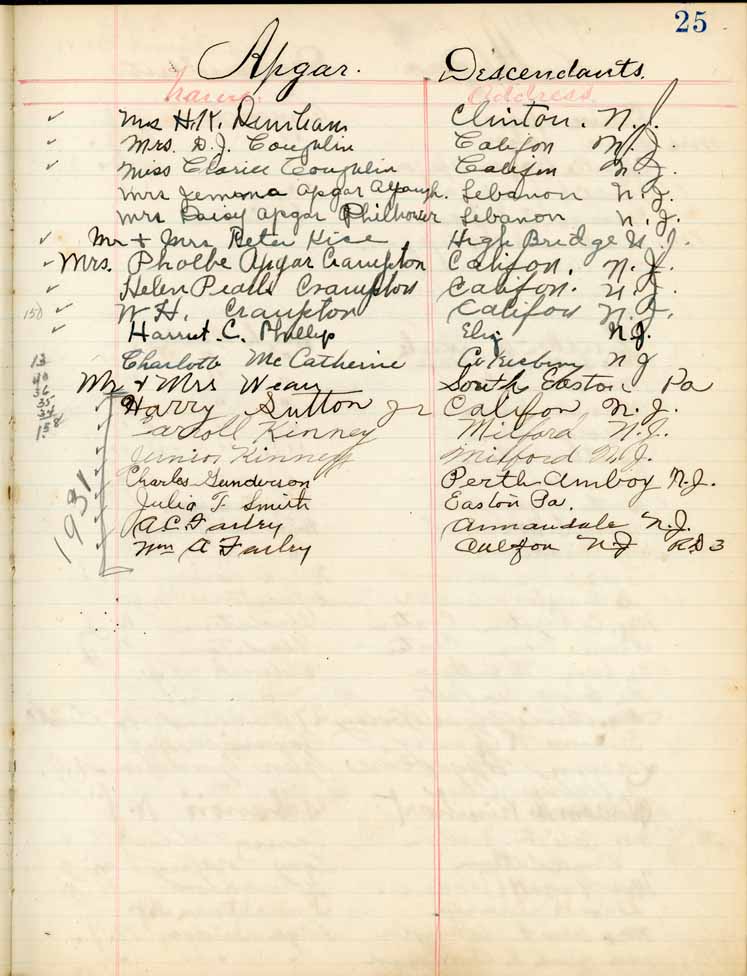 25
Apgar. Descendants.
Name. Address.
Mrs H. K. Dunham Clinton. N. J.
Mrs. D. J. Coughlin Califon N. J.
Miss Clarice Coughlin Califon N. J.
Mrs Jemima Apgar Alpaugh. Lebanon N. J.
Mrs Daisy Apgar Philhower Lebanon N. J.
Mr + Mrs Peter Kice High Bridge N. J.
Mrs. Phoebe Apgar Crampton Califon. N. J.
Helen Pearle Crampton Califon. N. J.
150 W. H. Crampton Califon N. J.
Harriet. C. Phillips N. J.
13 Charlotte McCatherine N J
40 Mr & Mrs Wean South Easton Pa
36
35 Harry Sutton Jr Califon N. J.
34
158 Carroll Kinney Milford N. J.
Junior Kinney Milford N. J.
1931 Charles Gunderson Perth Amboy N. J.
Julia T. Smith Easton Pa.
A C. Farley Annandale N. J.
Wm A Farley Califon N J R. D. 3